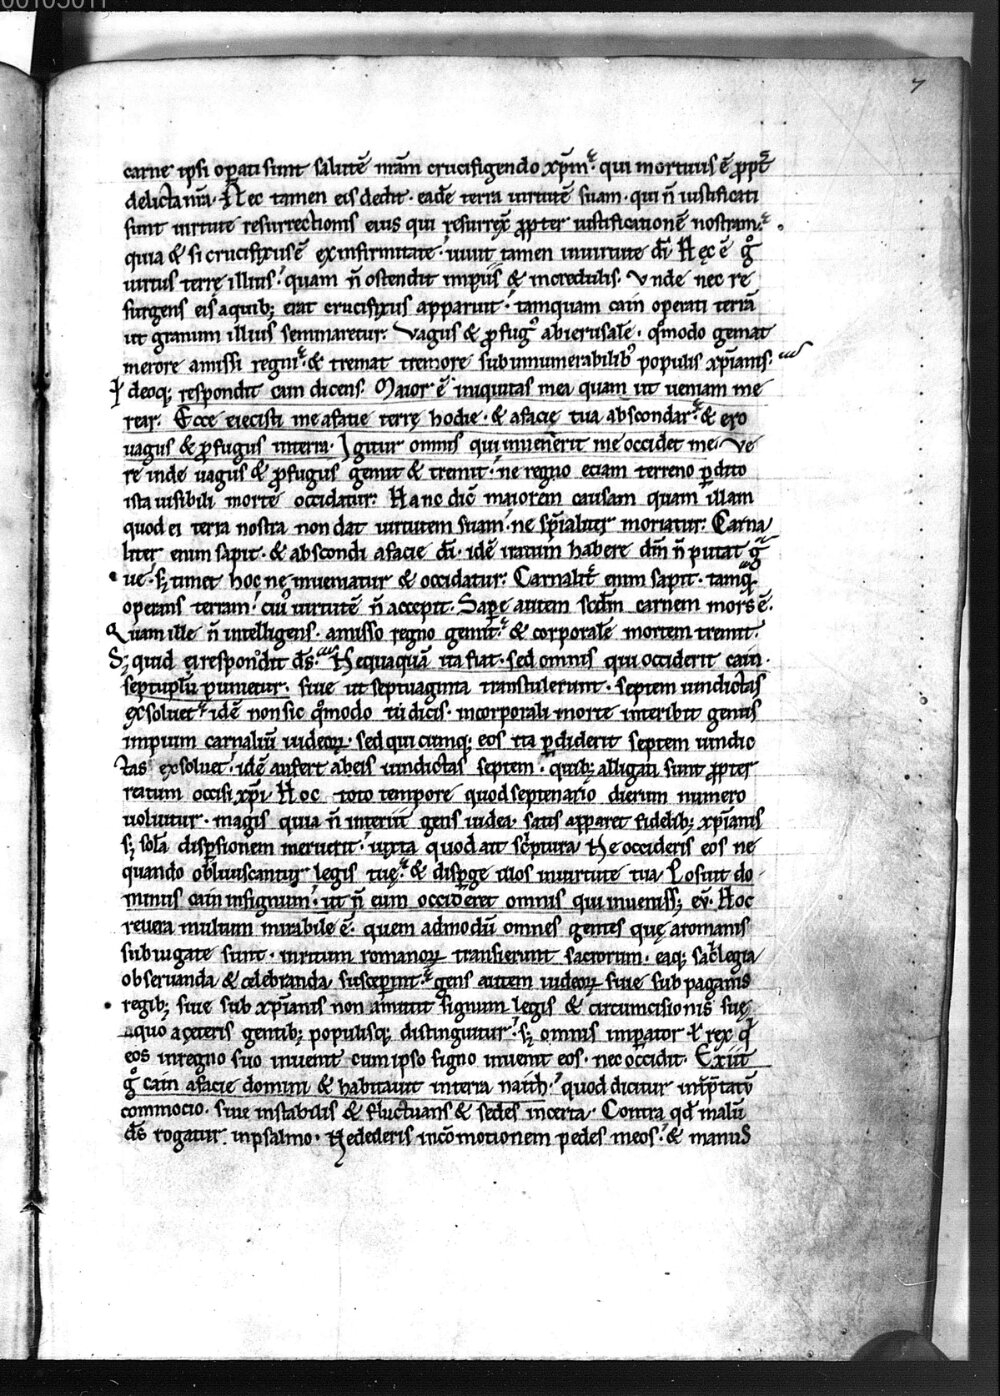 00105011
7
carne ipsi oꝑati sunt salutē nr̄am crucifigendo xp̄m. qui mortuus ē ꝓpt̄
delicta nr̄a. Nec tamen eis dedit. eadē terra uirtutē suam. qui n̄ iustificati
sunt uirtute resurrectionis eius qui resurrex̄ ꝓpter iustificationē nostram.
quia & si crucifixus ē ex infirmitate. uiuit tamen in uirtute dī. Hęc ē gͦ
uirtus terrę illius. quam n̄ ostendit impiis & incredulis. Vnde nec re
surgens eis a quibꝫ erat crucifixus apparuit. tamquam cain operati terrā
ut granum illius seminaretur. Vagus & ꝓfugꝰ ab ierusalē. qͦmodo gemat
merore amissi regni. & tremat tremore sub innumerabilibꝰ populis xp̄ianis.
Ideoqꝫ respondit cain dicens. Maior ē iniquitas mea quam ut ueniam me
rear. Ecce eiecisti me a facie terrę hodie. & a facie tua abscondar. & ero
uagus & ꝓfugus in terra. Igitur omnis qui inuenerit me occidet me. Ve
re inde uagus & ꝓfugus gemit & tremit. ne regno etiam terreno ꝑdito
ista uisibili morte occidatur. Hanc dic̄ maiorem causam quam illam
quod ei terra nostra non dat uirtutem suam. ne sp̄ialiter moriatur. Carna
liter enim sapit. & abscondi a facie dī. idē iratum habere dm̄ n̄ putat gͣ
ue. sꝫ timet hoc ne inueniatur & occidatur. Carnalit̄ enim sapit. tamqͣ
operans terram. cuiꝰ uirtutē n̄ accepit. Saꝑe autem scdm̄ carnem mors ē.
Quam ille n̄ intelligens. amisso regno gemit. & corporalē mortem tremit.
Sꝫ quid ei respondit ds̄. Nequaquā ita fiat. sed omnis qui occiderit cain.
septuplū punietur. siue ut septuaginta transtulerunt. septem uindictas
exsoluet. idē non sic qͦmodo tu dicis. in corporali morte interibit genus
impium carnaliū iudeoꝝ. sed qui cumqꝫ eos ita ꝑdiderit septem uindic
tas exsoluet. idē aufert ab eis uindictas septem. quibꝫ alligati sunt ꝓpter
reatum occisi xp̄i. Hoc toto tempore quod septenario dierum numero
uoluitur. magis quia n̄ interiit gens iudea. satis apparet fidelibꝫ xp̄ianis
sꝫ solā disꝑsionem meruerit. iuxta quod ait sc̄ptura. Ne occideris eos ne
quando obliuiscantur legis tuę. & disꝑge illos in uirtute tua. Posuit do
minus cain in signum. ut n̄ eum occideret omnis qui inuenissꝫ eū. Hoc
reuera multum mirabile ē. quem admodū omnes gentes quę a romanis
subiugate sunt. in ritum romanoꝝ transierunt sacrorum. eaqꝫ sac̄legia
obseruanda & celebranda susceperunt. gens autem iudeoꝝ siue sub paganis
regibꝫ siue sub xp̄ianis non amittit signum legis & circumcisionis suę
a quo a ceteris gentibꝫ populisqꝫ distinguitur. sꝫ omnis imꝑator ł rex qͥ
eos in regno suo inuenit cum ipso signo inuenit eos. nec occidit. Exiit
gͦ cain a facie domini & habitauit in terra naith. quod dicitur int̄p̄tatū
commocio. siue instabilis & fluctuans & sedes incerta. Contra qd̄ malū
ds̄ rogatur in psalmo. Ne dederis in cōmotionem pedes meos. & manus